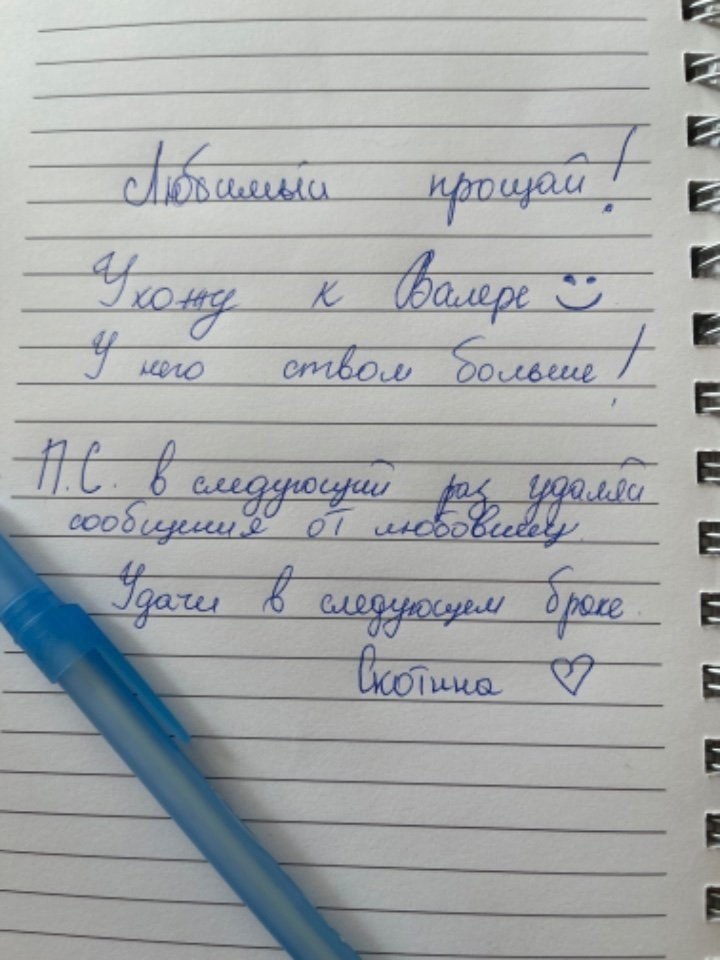 Любимый прощай!
Ухожу к Валере
У него ствол больше!
П.С. в следующий раз удаляй
сообщения от любовниц.
Удачи в следующем браке
Скотина